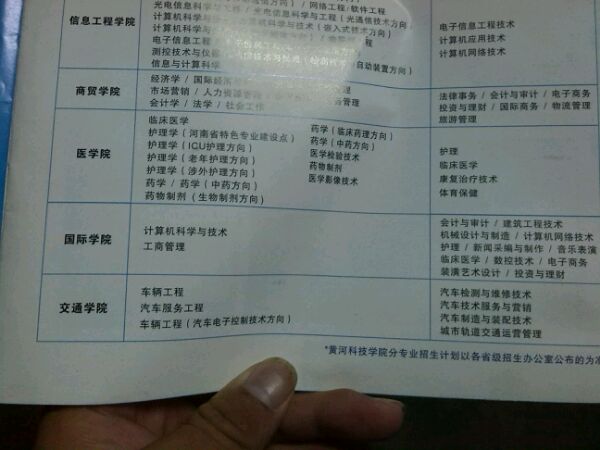 信息工程学院
光电信息科学与工程 / 光电信息科学与工程(光通信技术方向)
计算机科学与技术(嵌入式技术方向)
电子信息工程
测控技术与仪器
自动装置方向)
信息与计算科学
电子信息工程技术
计算机应用技术
计算机网络技术
商贸学院
经济学 / 国际经济
市场营销 / 人力资源管理
会计学 / 法学 / 社会工作
法律事务 / 会计与审计 / 电子商务
投资与理财 / 国际商务 / 物流管理
旅游管理
医学院
临床医学
护理学(河南省特色专业建设点)
护理学(ICU护理方向)
护理学(老年护理方向)
护理学(涉外护理方向)
药学 / 药学(中药方向)
药物制剂(生物制剂方向)
药学(临床药理方向)
药学(中药方向)
医学检验技术
药物制剂
医学影像技术
护理
临床医学
康复治疗技术
体育保健
国际学院
计算机科学与技术
工商管理
会计与审计 / 建筑工程技术
机械设计与制造 / 计算机网络技术
护理 / 新闻采编与制作 / 音乐表演
临床医学 / 数控技术 / 电子商务
装潢艺术设计 / 投资与理财
交通学院
车辆工程
汽车服务工程
车辆工程(汽车电子控制技术方向)
汽车检测与维修技术
汽车技术服务与营销
汽车制造与装配技术
城市轨道交通运营管理
*黄河科技学院分专业招生计划以各省级招生办公室公布的为准